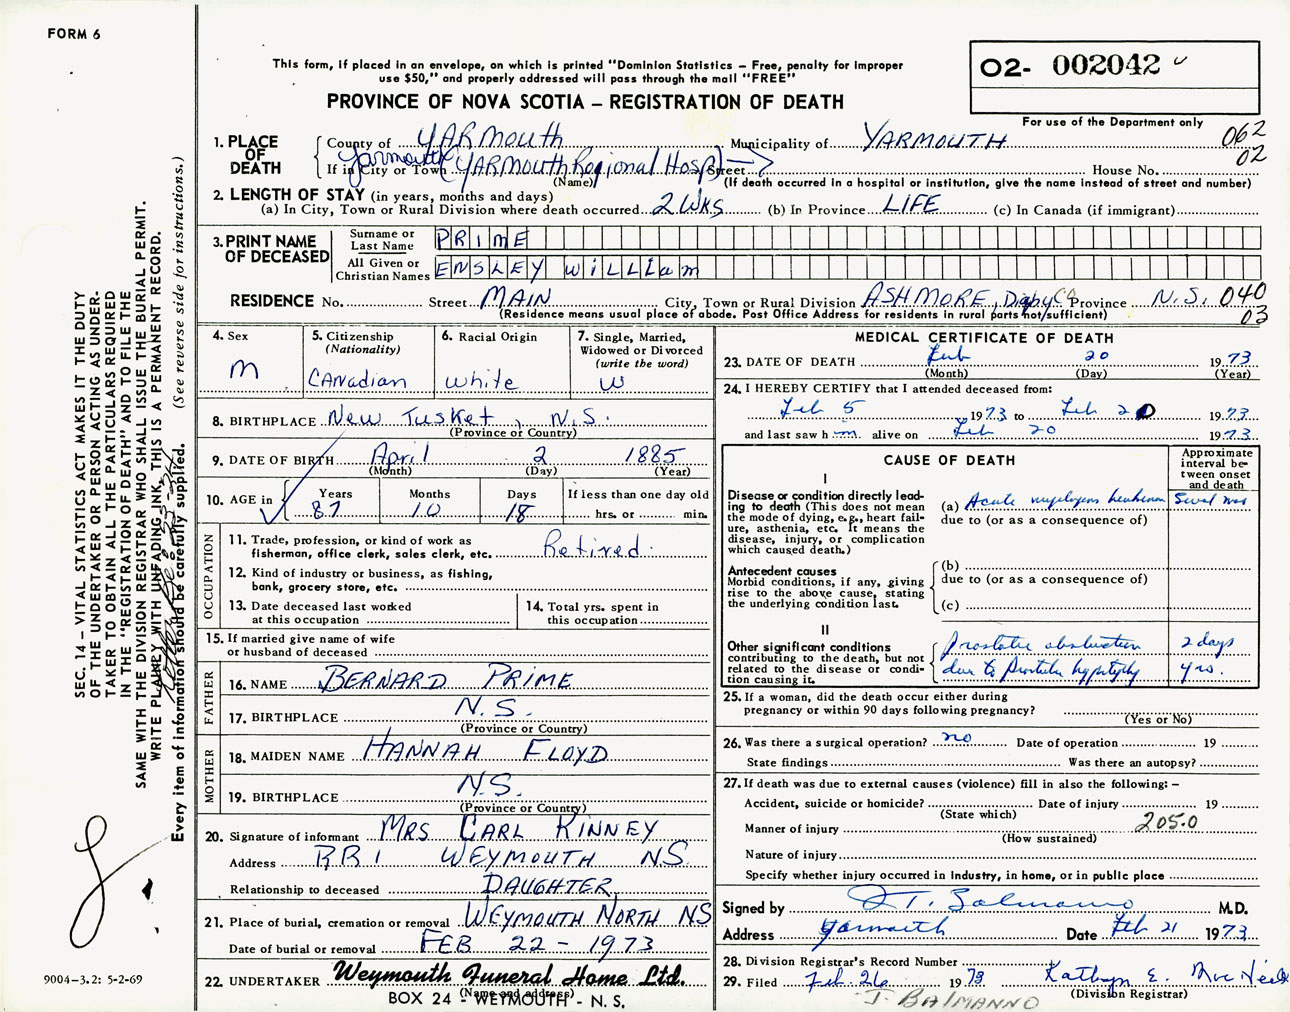 FORM 6
This form, if placed in an envelope, on which is printed "Dominion Statistics – Free, penalty for improper
use $50," and properly addressed will pass through the mail "FREE"
O2- 002042
For use of the Department only
PROVINCE OF NOVA SCOTIA – REGISTRATION OF DEATH
062
02
1. PLACE OF DEATH
County of YARMOUTH Municipality of YARMOUTH
If in City or Town Yarmouth (YARMOUTH Regional Hosp) Street House No.
(Name) (If death occurred in a hospital or institution, give the name instead of street and number)
2. LENGTH OF STAY (in years, months and days)
(a) In City, Town or Rural Division where death occurred 2 WKS (b) In Province LIFE (c) In Canada (if immigrant)
3. PRINT NAME OF DECEASED
Surname or Last Name PRIME
All Given or Christian Names ENSLEY WILLIAM
RESIDENCE No. Street MAIN City, Town or Rural Division ASHMORE, Digby Co Province N.S. 040
(Residence means usual place of abode. Post Office Address for residents in rural parts not sufficient) 03
4. Sex M
5. Citizenship (Nationality) CANadian
6. Racial Origin White
7. Single, Married, Widowed or Divorced (write the word) W
8. BIRTHPLACE New Tusket, N.S.
(Province or Country)
9. DATE OF BIRTH April 2 1885
(Month) (Day) (Year)
10. AGE in Years 87 Months 10 Days 18 If less than one day old
hrs. or min.
OCCUPATION
11. Trade, profession, or kind of work as
fisherman, office clerk, sales clerk, etc. Retired.
12. Kind of industry or business, as fishing,
bank, grocery store, etc.
13. Date deceased last worked
at this occupation
14. Total yrs. spent in
this occupation
15. If married give name of wife
or husband of deceased
FATHER
16. NAME BERNARD PRIME
17. BIRTHPLACE N.S.
(Province or Country)
MOTHER
18. MAIDEN NAME HANNAH FLOYD
19. BIRTHPLACE N.S.
(Province or Country)
20. Signature of informant MRS CARL KINNEY
Address RR 1 WEYMOUTH NS
Relationship to deceased DAUGHTER
21. Place of burial, cremation or removal WEYMOUTH NORTH NS
Date of burial or removal FEB 22 - 1973
22. UNDERTAKER Weymouth Funeral Home Ltd.
(Name and address)
BOX 24 - WEYMOUTH - N. S.
MEDICAL CERTIFICATE OF DEATH
23. DATE OF DEATH Feb 20 1973
(Month) (Day) (Year)
24. I HEREBY CERTIFY that I attended deceased from:
Feb 5 1973 to Feb 20 1973
and last saw h m alive on Feb 20 1973
CAUSE OF DEATH
Approximate interval between onset and death
I
Disease or condition directly leading to death (This does not mean the mode of dying, e.g., heart failure, asthenia, etc. It means the disease, injury, or complication which caused death.)
(a) Acute
due to (or as a consequence of)
Antecedent causes
Morbid conditions, if any, giving rise to the above cause, stating the underlying condition last.
(b)
due to (or as a consequence of)
(c)
II
Other significant conditions
contributing to the death, but not related to the disease or condition causing it.
Prostatic obstruction 2 days
due to yrs.
25. If a woman, did the death occur either during
pregnancy or within 90 days following pregnancy?
(Yes or No)
26. Was there a surgical operation? no Date of operation 19
State findings Was there an autopsy?
27. If death was due to external causes (violence) fill in also the following: –
Accident, suicide or homicide? Date of injury 19
(State which)
Manner of injury 205.0
(How sustained)
Nature of injury
Specify whether injury occurred in industry, in home, or in public place
Signed by T. Balmanno M.D.
Address Yarmouth Date Feb 21 1973
28. Division Registrar's Record Number
29. Filed Feb. 26 1973 Kathryn E.
(Division Registrar)
J. BALMANNO
SEC. 14 – VITAL STATISTICS ACT MAKES IT THE DUTY
OF THE UNDERTAKER OR PERSON ACTING AS UNDER-
TAKER TO OBTAIN ALL THE PARTICULARS REQUIRED
IN THE "REGISTRATION OF DEATH" AND TO FILE THE
SAME WITH THE DIVISION REGISTRAR WHO SHALL ISSUE THE BURIAL PERMIT.
WRITE PLAINLY WITH UNFADING INK, THIS IS A PERMANENT RECORD.
Every item of information should be carefully supplied. (See reverse side for instructions.)
9004–3.2: 5-2-69